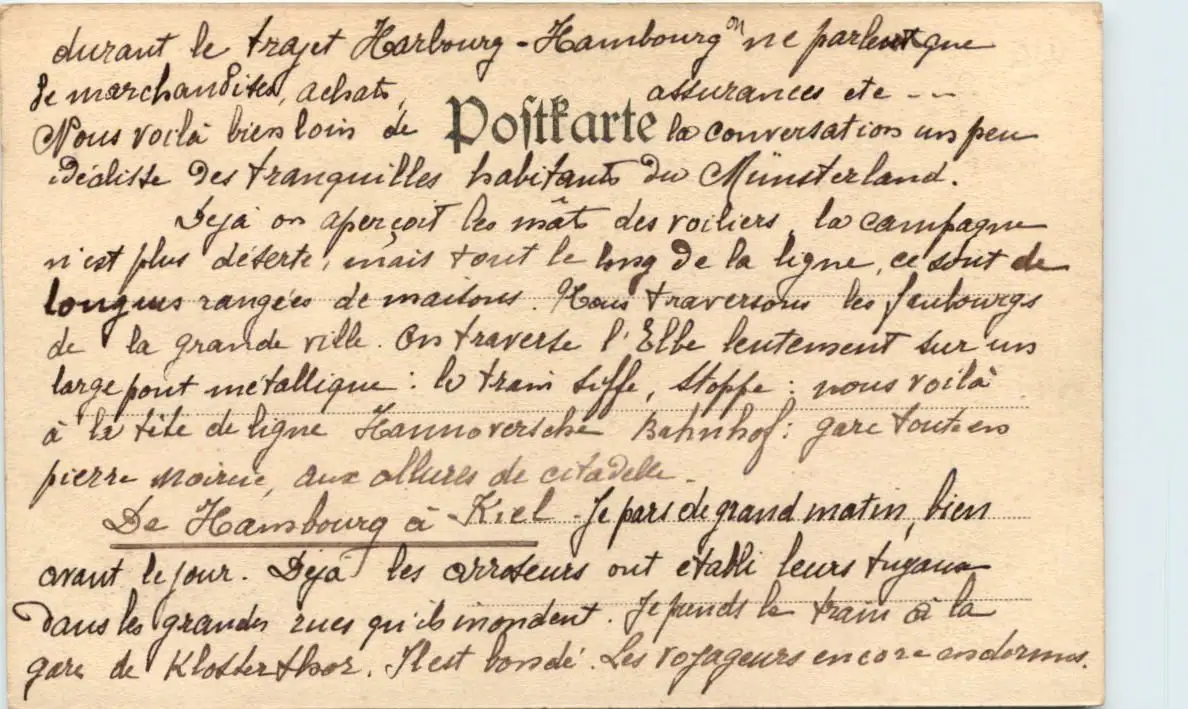 durant le trajet Harbourg - Hambourg on ne parle que
de marchandises, achats, assurances etc - -
Nous voilà bien loin de Postkarte la conversation un peu
idéaliste des tranquilles habitants du Münsterland.
Dejà on aperçoit les mâts des voiliers, la campagne
n'est plus déserte, mais tout le long de la ligne, ce sont de
longues rangées de maisons. Nous traversons les faubourgs
de la grande ville. On traverse l'Elbe lentement sur un
large pont métallique : le train siffe, stoppe : nous voilà
à la tête de ligne Hannoversche Bahnhof : gare toute en
pierre noircie, aux allures de citadelle.
De Hambourg à Kiel - Je pars de grand matin, bien
avant le jour. Dejà les arroseurs ont établi leurs tuyaux
dans les grandes rues qu'ils inondent. Je prends le train à la
gare de Klosterthor. Il est bondé. Les voyageurs encore endormis.